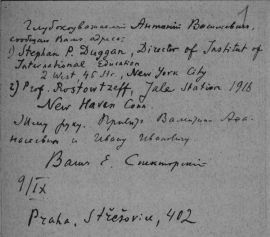 1
Глубокоуважаемый Антоний Васильевич,
сообщаю Вам адрес:
1) Stephan P. Duggan, Director of Institut of
International Education
2 West 45 Str., New York City
2) Prof. Rostowtzeff, Yale Station 1916
New Haven Conn.
Жму руку. Привет Валерию Афа-
насьевичу и Ивану Ивановичу
Ваш Е. Спекторский
9/IX
Praha, Střešovice, 402